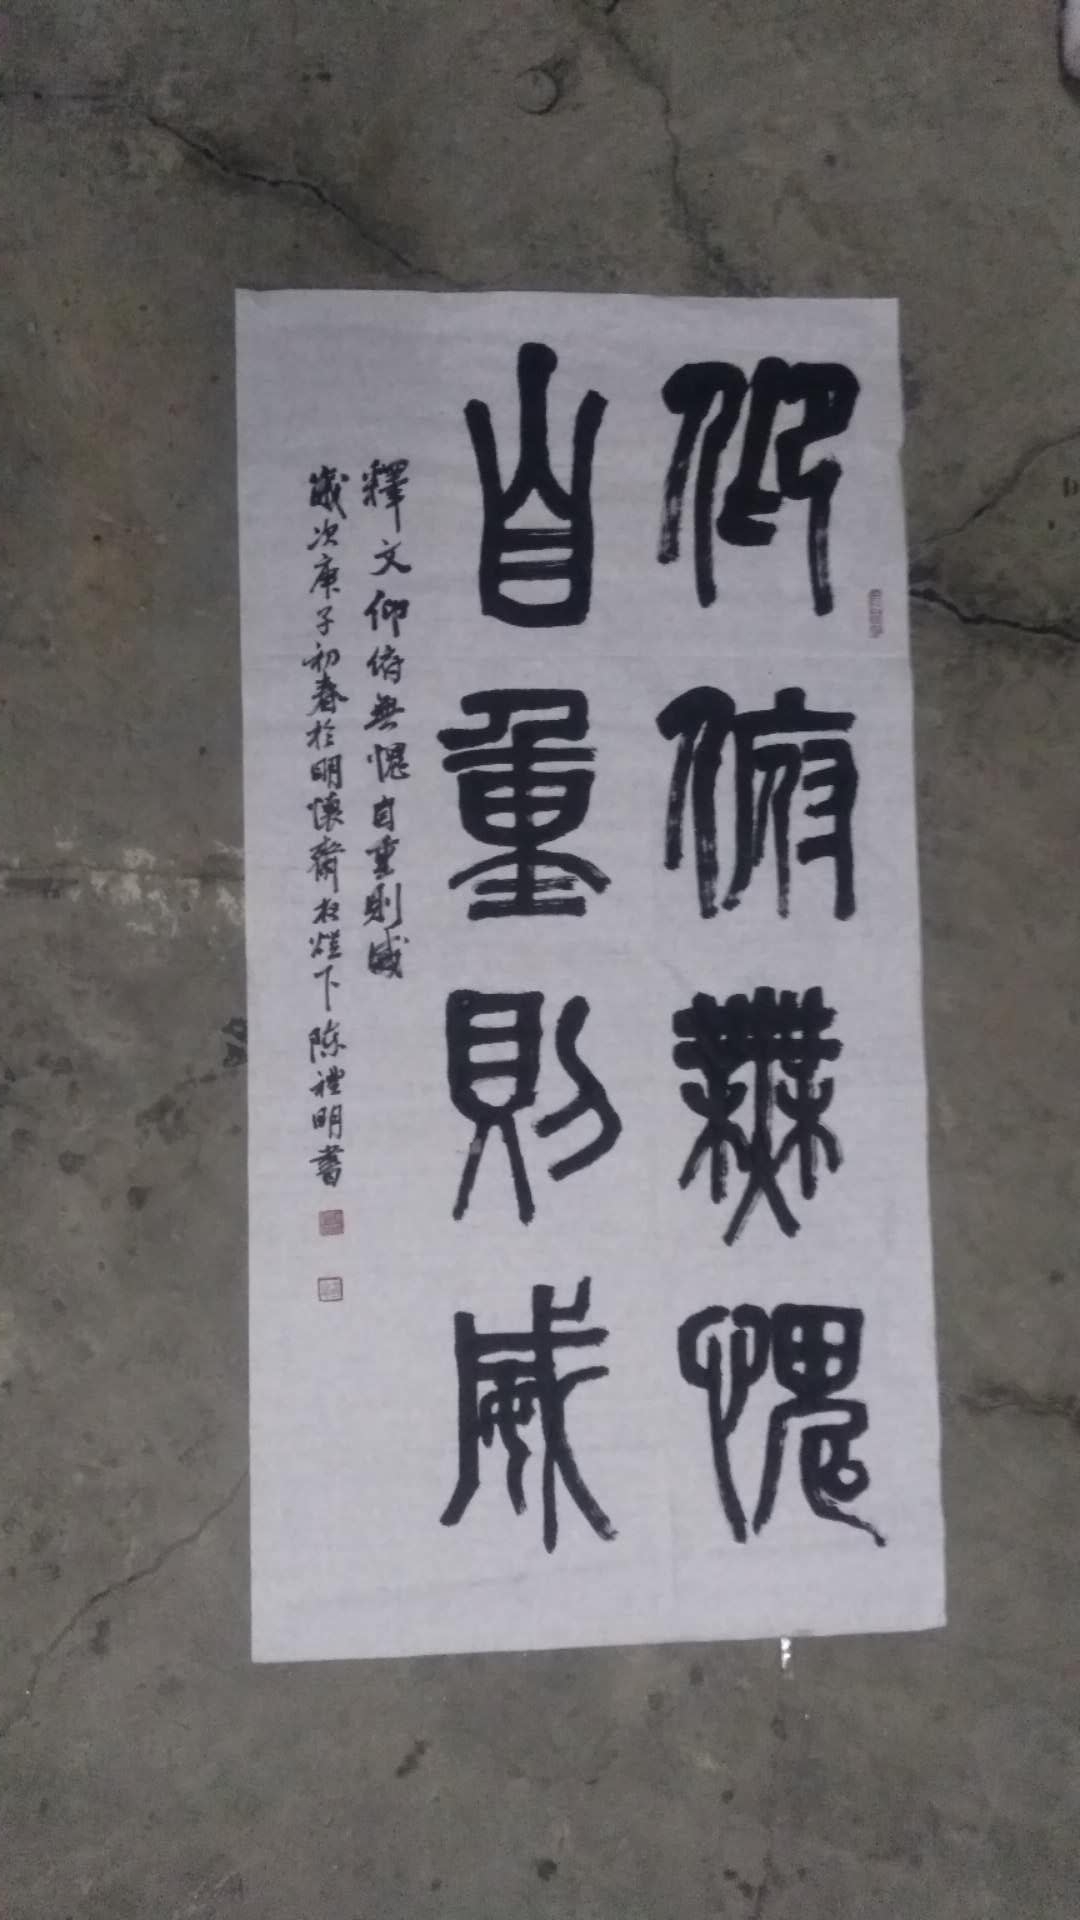 仰俯無愧
自重則威
釋文仰俯無愧自重則威
歲次庚子初春於明懷齋灯下陳禮明書